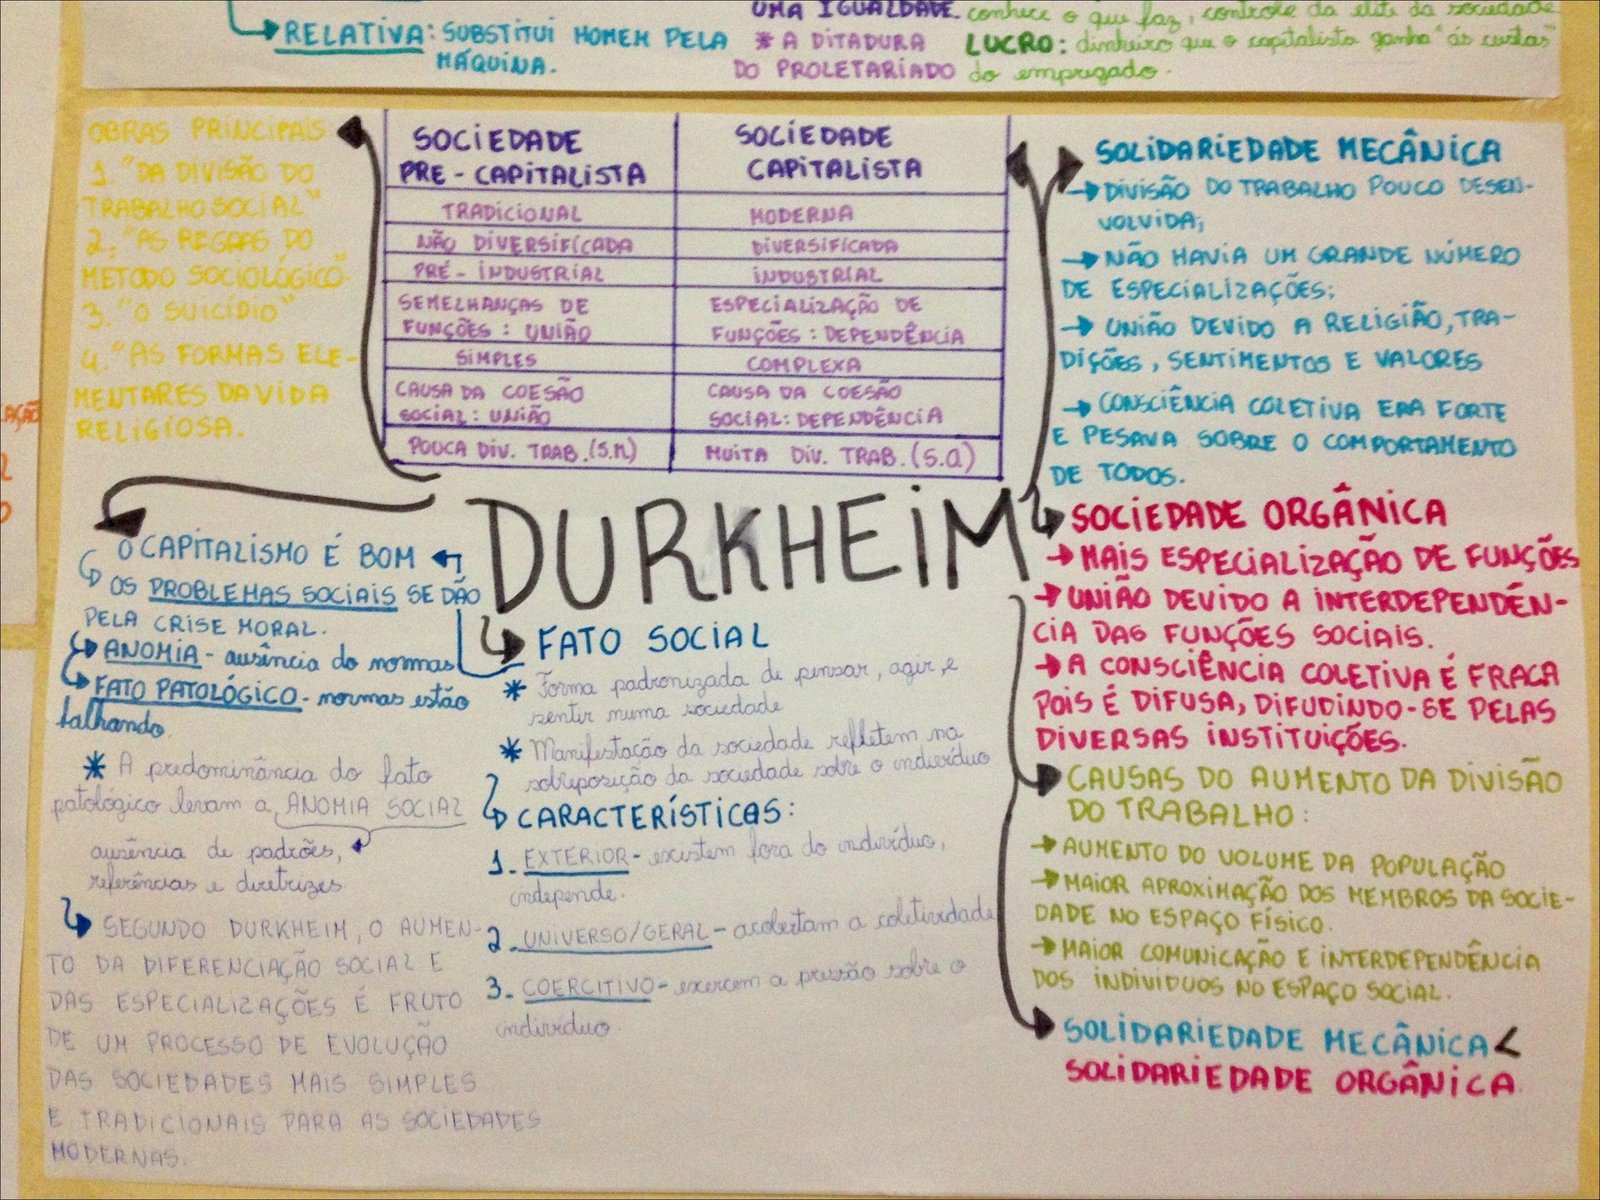 RELATIVA: SUBSTITUI HOMEM PELA
MÁQUINA.
UMA IGUALDADE.
* A DITADURA
DO PROLETARIADO
conhece o que faz, controle da elite da sociedade
LUCRO: dinheiro que o capitalista ganha "ás custas"
do empregado.
OBRAS PRINCIPAIS
1. "DA DIVISÃO DO
TRABALHO SOCIAL"
2. "AS REGRAS DO
METODO SOCIOLÓGICO"
3. "O SUICÍDIO"
4. "AS FORMAS ELE-
MENTARES DA VIDA
RELIGIOSA.
SOCIEDADE
PRE-CAPITALISTA
SOCIEDADE
CAPITALISTA
TRADICIONAL
MODERNA
NÃO DIVERSIFICADA
DIVERSIFICADA
PRÉ-INDUSTRIAL
INDUSTRIAL
SEMELHANÇAS DE
FUNÇÕES: UNIÃO
ESPECIALIZAÇÃO DE
FUNÇÕES: DEPENDÊNCIA
SIMPLES
COMPLEXA
CAUSA DA COESÃO
SOCIAL: UNIÃO
CAUSA DA COESÃO
SOCIAL: DEPENDÊNCIA
POUCA DIV. TRAB. (S.M)
MUITA DIV. TRAB. (S.O)
SOLIDARIEDADE MECÂNICA
→ DIVISÃO DO TRABALHO POUCO DESEN-
VOLVIDA;
→ NÃO HAVIA UM GRANDE NÚMERO
DE ESPECIALIZAÇÕES;
→ UNIÃO DEVIDO A RELIGIÃO, TRA-
DIÇÕES, SENTIMENTOS E VALORES
→ CONSCIÊNCIA COLETIVA ERA FORTE
E PESAVA SOBRE O COMPORTAMENTO
DE TODOS.
DURKHEIM
SOCIEDADE ORGÂNICA
→ MAIS ESPECIALIZAÇÃO DE FUNÇÕES
→ UNIÃO DEVIDO A INTERDEPENDÊN-
CIA DAS FUNÇÕES SOCIAIS.
→ A CONSCIÊNCIA COLETIVA É FRACA
POIS É DIFUSA, DIFUDINDO-SE PELAS
DIVERSAS INSTITUIÇÕES.
CAUSAS DO AUMENTO DA DIVISÃO
DO TRABALHO:
→ AUMENTO DO VOLUME DA POPULAÇÃO
→ MAIOR APROXIMAÇÃO DOS MEMBROS DA SOCIE-
DADE NO ESPAÇO FÍSICO.
→ MAIOR COMUNICAÇÃO E INTERDEPENDÊNCIA
DOS INDIVIDUOS NO ESPAÇO SOCIAL.
SOLIDARIEDADE MECÂNICA <
SOLIDARIEDADE ORGÂNICA.
O CAPITALISMO É BOM
OS PROBLEMAS SOCIAIS SE DÃO
PELA CRISE MORAL.
ANOMIA - ausência do normas
FATO PATOLÓGICO - normas estão
falhando.
* A predominância do fato
patológico levam a ANOMIA SOCIAL
ausência de padrões,
referências e diretrizes
SEGUNDO DURKHEIM, O AUMEN-
TO DA DIFERENCIAÇÃO SOCIAL E
DAS ESPECIALIZAÇÕES É FRUTO
DE UM PROCESSO DE EVOLUÇÃO
DAS SOCIEDADES MAIS SIMPLES
E TRADICIONAIS PARA AS SOCIEDADES
MODERNAS.
FATO SOCIAL
* Forma padronizada de pensar, agir, e
sentir numa sociedade
* Manifestação da sociedade refletem na
sobreposição da sociedade sobre o indivíduo
CARACTERÍSTICAS:
1. EXTERIOR - existem fora do indivíduo,
independe.
2. UNIVERSO/GERAL - acobertam a coletividade
3. COERCITIVO - exercem a pressão sobre o
indivíduo.